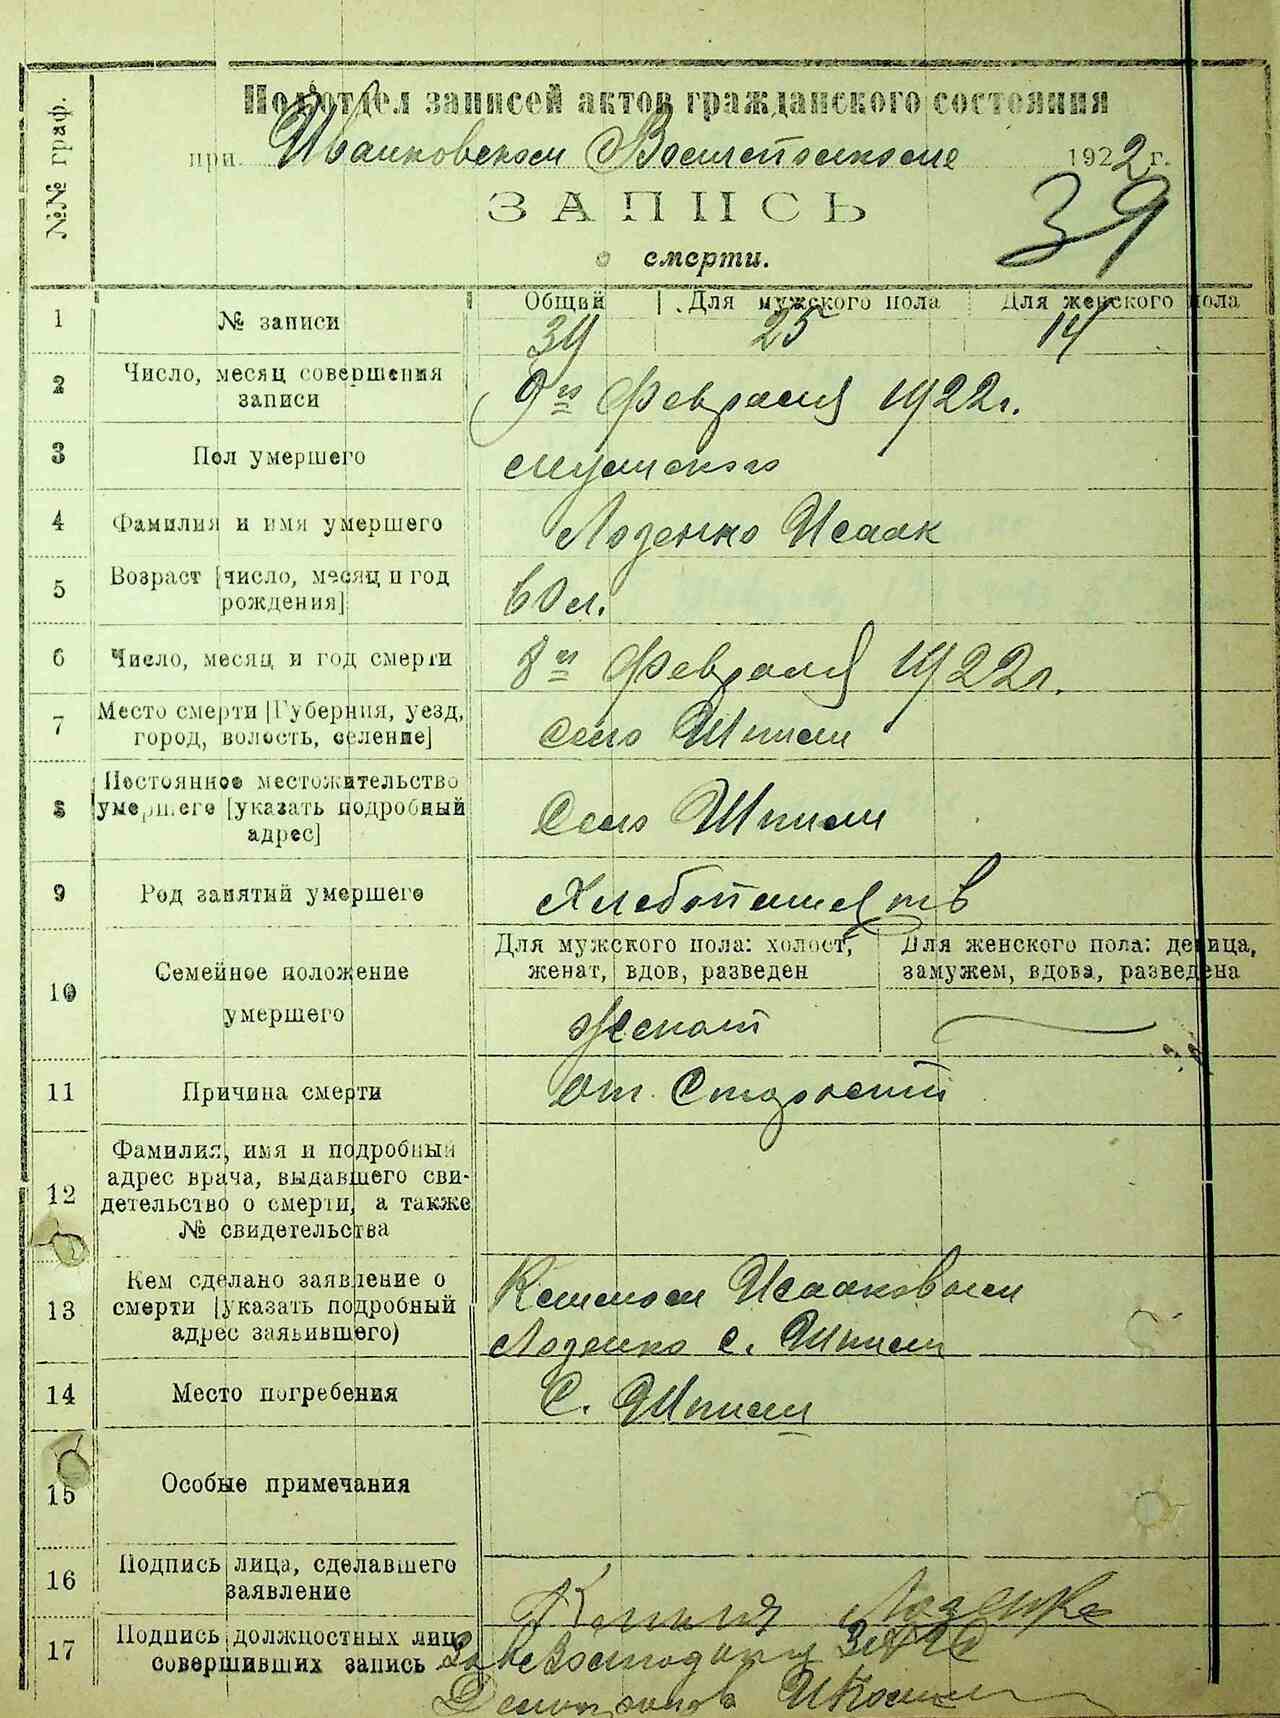 Подотдел записей актов гражданского состояния
при Иванковском Волисполкоме 1922 г.
ЗАПИСЬ
39
о смерти.
№№ граф.
Общий Для мужского пола Для женского пола
1 № записи 39 25 14
2 Число, месяц совершения записи 9го Февраля 1922 г.
3 Пол умершего мужского
4 Фамилия и имя умершего Лозенко Исаак
5 Возраст [число, месяц и год рождения] 60 л.
6 Число, месяц и год смерти 8го Февраля 1922 г.
7 Место смерти [Губерния, уезд, город, волость, селение] Село Шпили
8 Постоянное местожительство умершего [указать подробный адрес] Село Шпили
9 Род занятий умершего Хлебопашество
10 Семейное положение умершего
Для мужского пола: холост, женат, вдов, разведен
Для женского пола: девица, замужем, вдова, разведена
Женат
11 Причина смерти от Старости
12 Фамилия, имя и подробный адрес врача, выдавшего свидетельство о смерти, а также № свидетельства
13 Кем сделано заявление о смерти [указать подробный адрес заявившего)
Исааковым
Лозенко с. Шпили
14 Место погребения С. Шпили
15 Особые примечания
16 Подпись лица, сделавшего заявление Лозенко
17 Подпись должностных лиц, совершивших запись